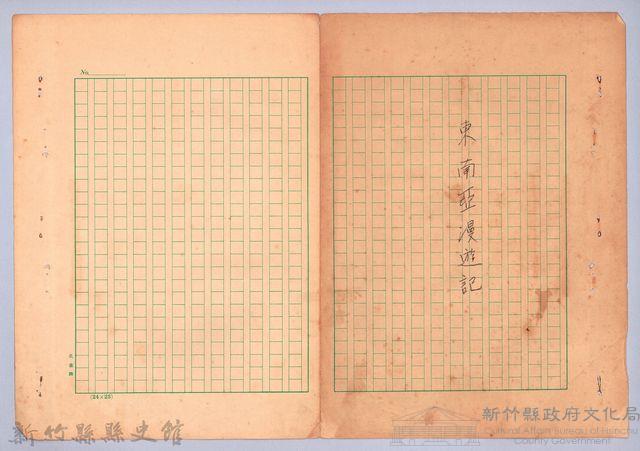 東南亞漫遊記
No.
(24×25)
新竹縣縣史館
新竹縣政府文化局
Cultural Affairs Bureau of Hsinchu
County Government